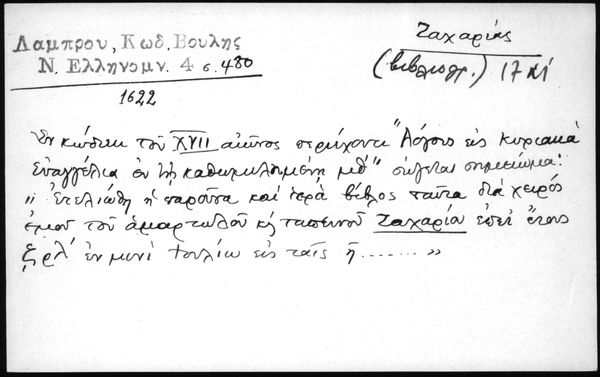 Λαμπρου, Κωδ. Βουλης
Ν. Ελληνομν. 4 σ. 480
1622
Ζαχαρίας
(βιβλιογρ.) 17 αἰ
Ἐν κώδικι τοῦ XVII αἰῶνος περιέχοντι "Λόγους εἰς Κυριακὰ
Εὐαγγέλια ἐν τῇ καθωμιλημένῃ" σώζεται σημείωμα:
"Ἐτελιώθη ἡ παροῦσα καὶ ἱερὰ βίβλος ταῦτα διὰ χειρός
ἐμοῦ τοῦ ἁμαρτωλοῦ κ̀ ταπεινοῦ Ζαχαρία ἐπεὶ ἔτους
ζρλ' ἐν μυνὶ Ἰουλίω εἰς ταῖς η ....... »